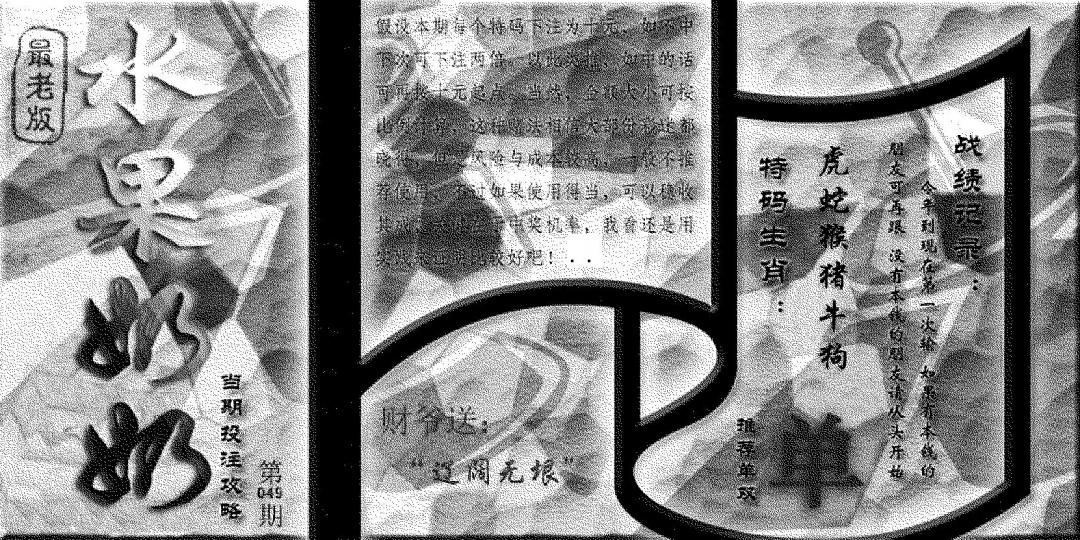 最老版
水果奶奶
当期投注攻略
第049期
假设本期每个特码下注为十元，如不中
下次可下注两倍。以此类推，如中的话
可再按十元起点，当然，金额大小可按
比例
这种
法相信大部份
都
风险与成本较高，一般不推
荐使用，不过如果使用得当，可以稳收
中奖机率，我看还是用
比较好吧！..
财爷送：
“辽阔无垠”
战绩记录：
今年到现在第一次输 如果有本钱的
朋友可再跟 没有本钱的朋友请从头开始
特码生肖：
虎蛇猴猪牛狗
推荐单双
单